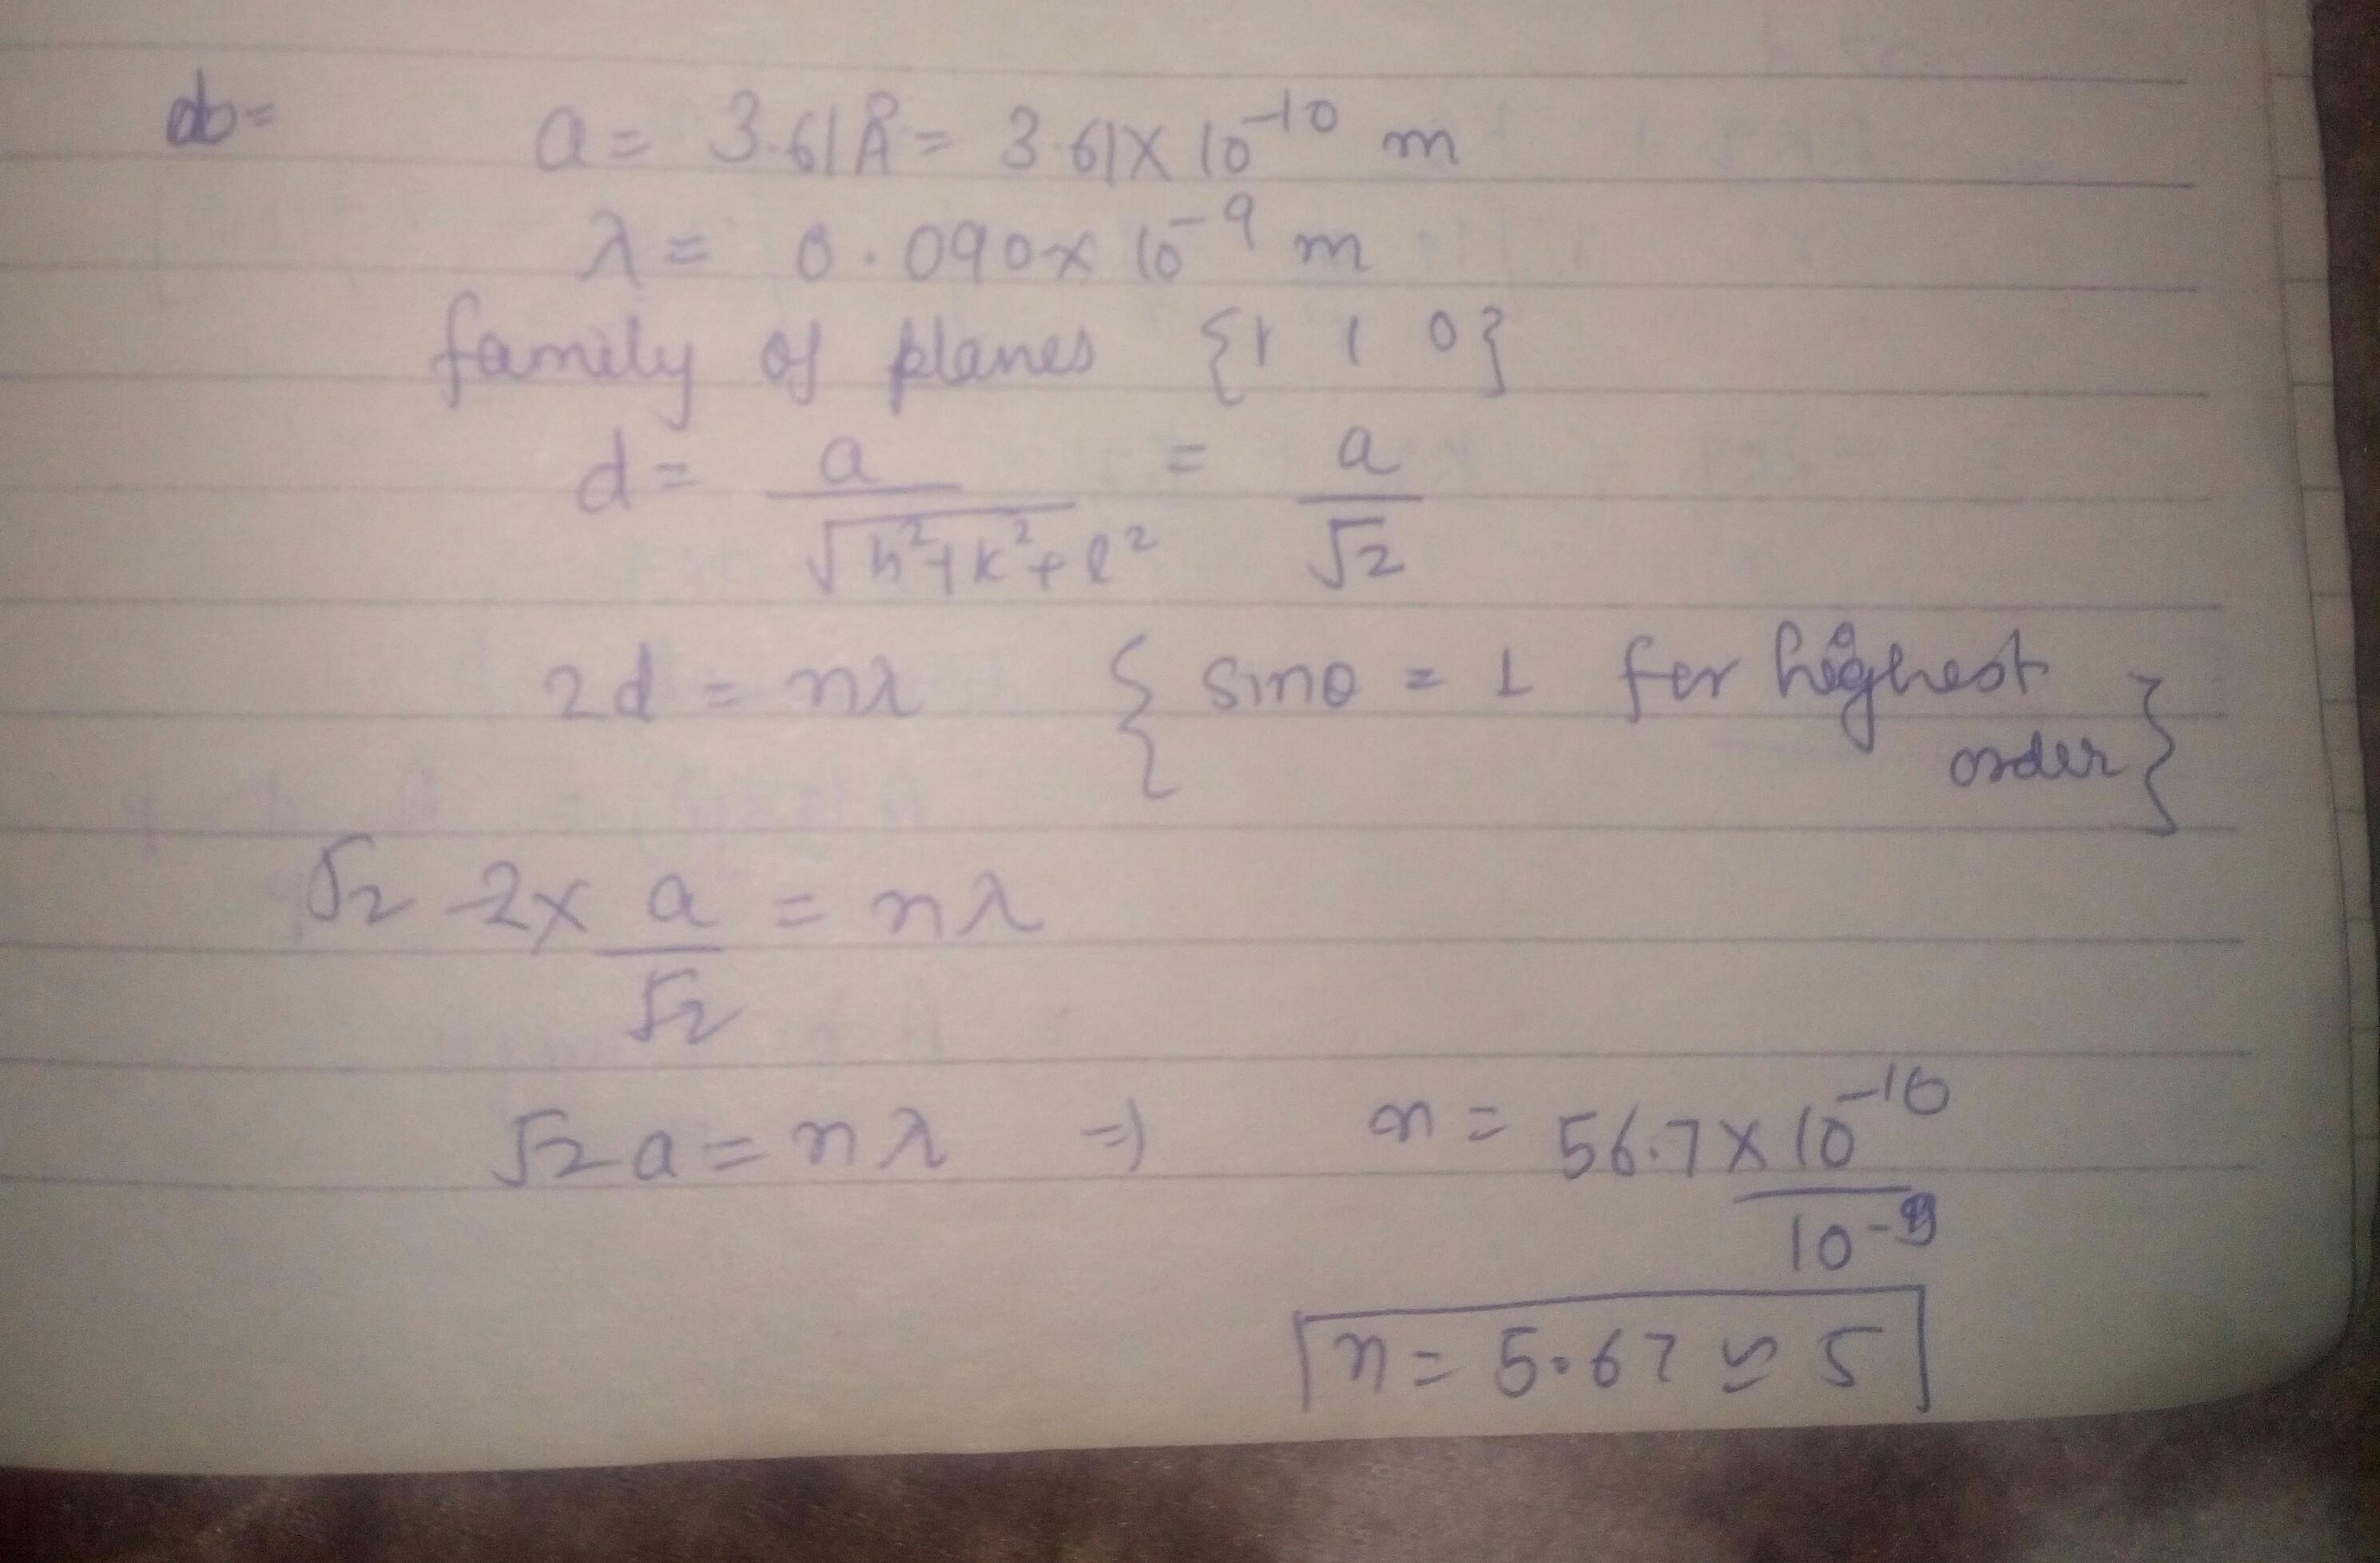 a = 3.61Å = 3.61 × 10⁻¹⁰ m
λ = 0.090 × 10⁻⁹ m
family of planes {1 1 0}
d = a/√h²+k²+l² = a/√2
2d = nλ { sinθ = 1 for highest order }
√2 2 × a/√2 = nλ
√2 a = nλ ⇒ n = 56.7 × 10⁻¹⁰/10⁻⁹
n = 5.67 ≃ 5